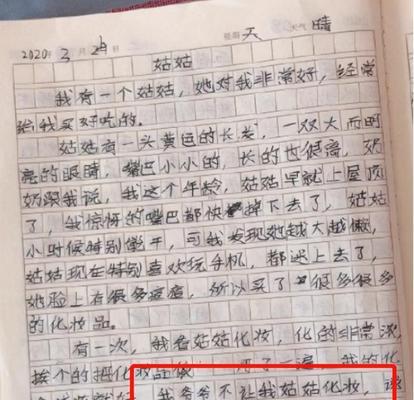 2020年3月29日 星期天 天气晴
姑姑
我有一个姑姑，她对我非常好，经常
给我买好吃的。
姑姑有一头黄色的长发，一双大而明
亮的眼睛，嘴巴小小的，长的也很高，奶
奶跟我说，我这个年龄，姑姑早就上屋顶
了，我惊讶的嘴巴都快掉下去了，姑姑
小时候特别能干，可我发现她越大越懒，
姑姑现在特别喜欢玩手机，都迷上去了，
她脸上有很多痘痘，所以买了很很多很多
的化妆品。
有一次，我看姑姑化妆，化的非常浓
挨个的把化妆品做 了一遍，我的化
我爷爷不让我姑姑化妆，